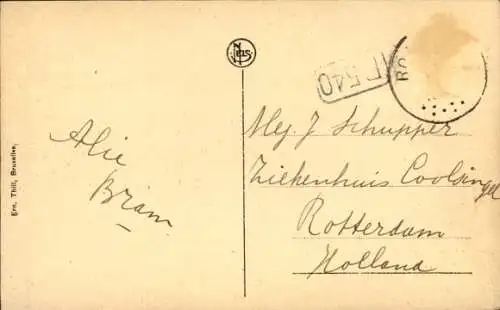 NELS
L 540
RO
Alie
Bram
Mej. J Schupper
Ziekenhuis Coolsingel
Rotterdam
Holland
Ern. Thill, Bruxelles.